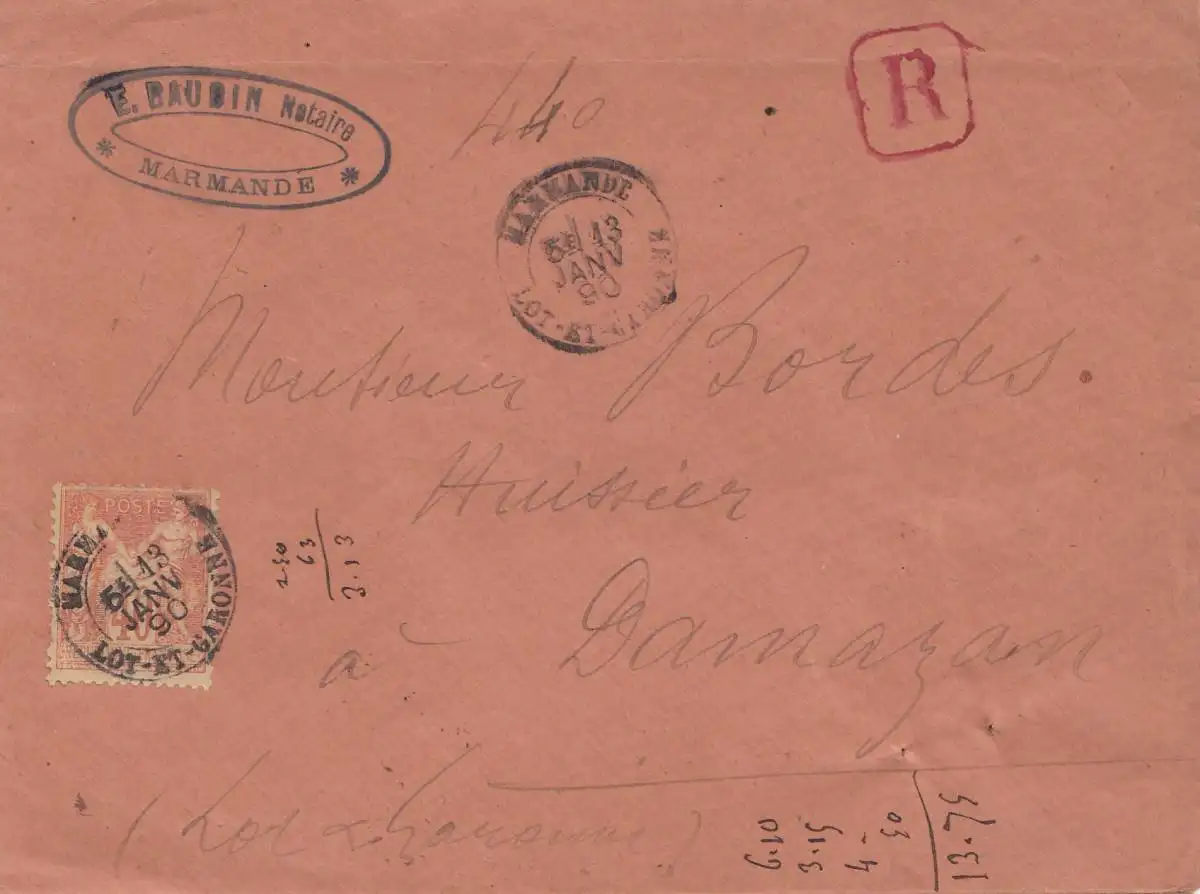 E. BAUDIN Notaire
* MARMANDE *
440
R
MARMANDE
5E 13
JANV
90
LOT-ET-GARONNE
Monsieur Bordes.
Huissier
à Damazan
(Lot & Garonne)
POSTES
40
MARMA
5E 13
JANV
90
LOT-ET-GARONNE
2.50
63
3.13
6.10
3.15
4-
50
13.75